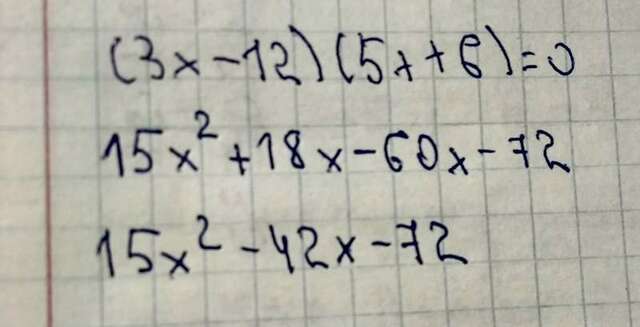 (3x-12)(5x+6)=0
15x²+18x-60x-72
15x²-42x-72